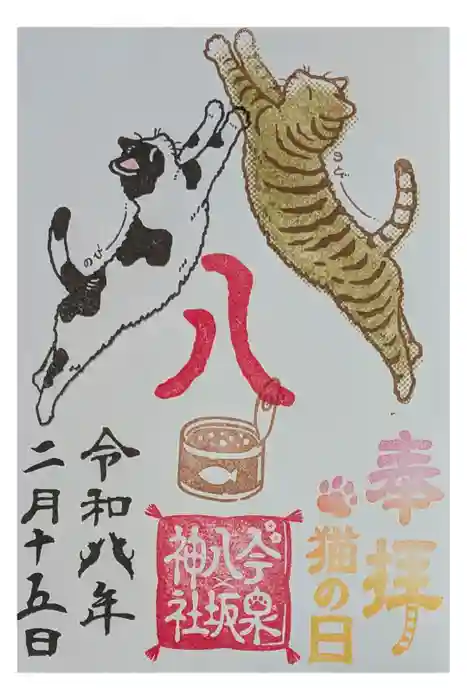 奉拝
猫の日
のび
八
のび
今泉
八坂
神社
令和八年
二月十五日